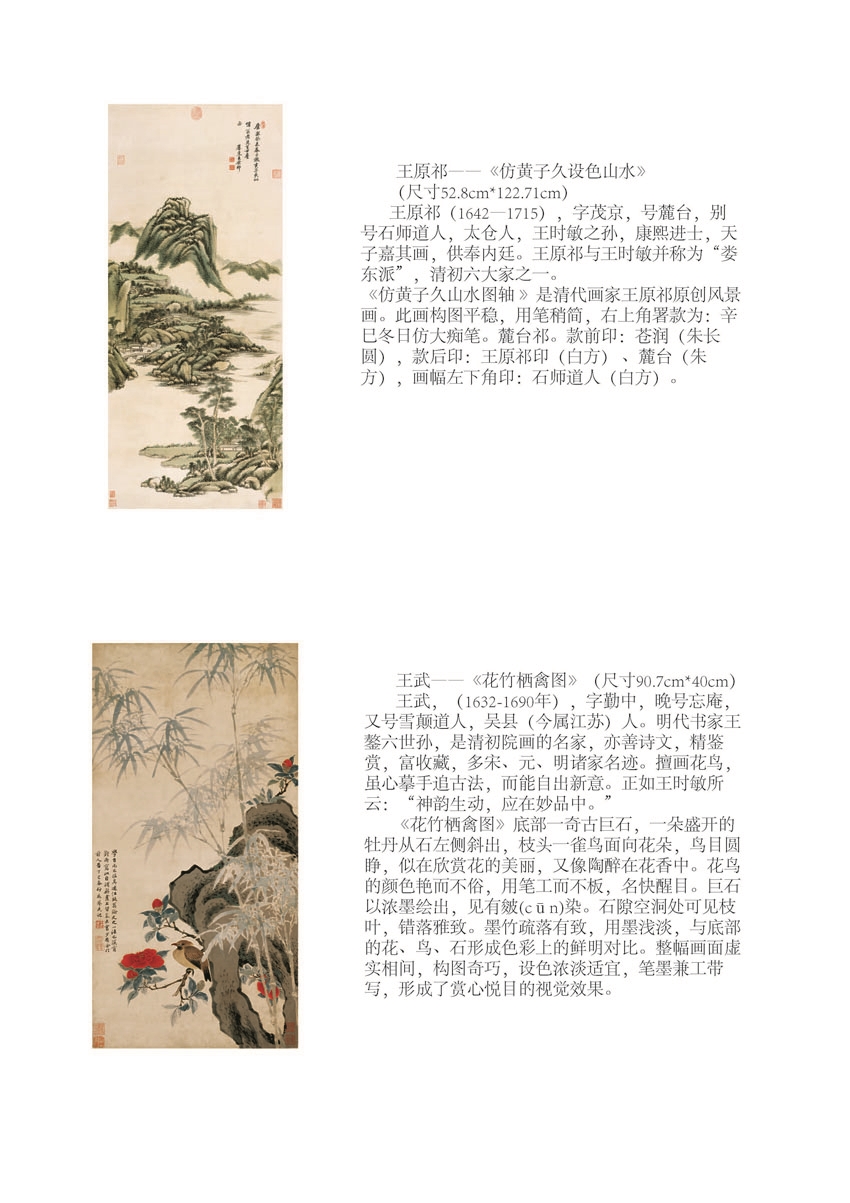 王原祁——《仿黄子久设色山水》
（尺寸52.8cm*122.71cm）
王原祁（1642—1715），字茂京，号麓台，别
号石师道人，太仓人，王时敏之孙，康熙进士，天
子嘉其画，供奉内廷。王原祁与王时敏并称为“娄
东派”，清初六大家之一。
《仿黄子久山水图轴 》是清代画家王原祁原创风景
画。此画构图平稳，用笔稍简，右上角署款为：辛
巳冬日仿大痴笔。麓台祁。款前印：苍润（朱长
圆），款后印：王原祁印（白方）、麓台（朱
方），画幅左下角印：石师道人（白方）。
王武——《花竹栖禽图》（尺寸90.7cm*40cm）
王武，（1632-1690年），字勤中，晚号忘庵，
又号雪颠道人，吴县（今属江苏）人。明代书家王
鏊六世孙，是清初院画的名家，亦善诗文，精鉴
赏，富收藏，多宋、元、明诸家名迹。擅画花鸟，
虽心摹手追古法，而能自出新意。正如王时敏所
云：“神韵生动，应在妙品中。”
《花竹栖禽图》底部一奇古巨石，一朵盛开的
牡丹从石左侧斜出，枝头一雀鸟面向花朵，鸟目圆
睁，似在欣赏花的美丽，又像陶醉在花香中。花鸟
的颜色艳而不俗，用笔工而不板，名快醒目。巨石
以浓墨绘出，见有皴(cūn)染。石隙空洞处可见枝
叶，错落雅致。墨竹疏落有致，用墨浅淡，与底部
的花、鸟、石形成色彩上的鲜明对比。整幅画面虚
实相间，构图奇巧，设色浓淡适宜，笔墨兼工带
写，形成了赏心悦目的视觉效果。